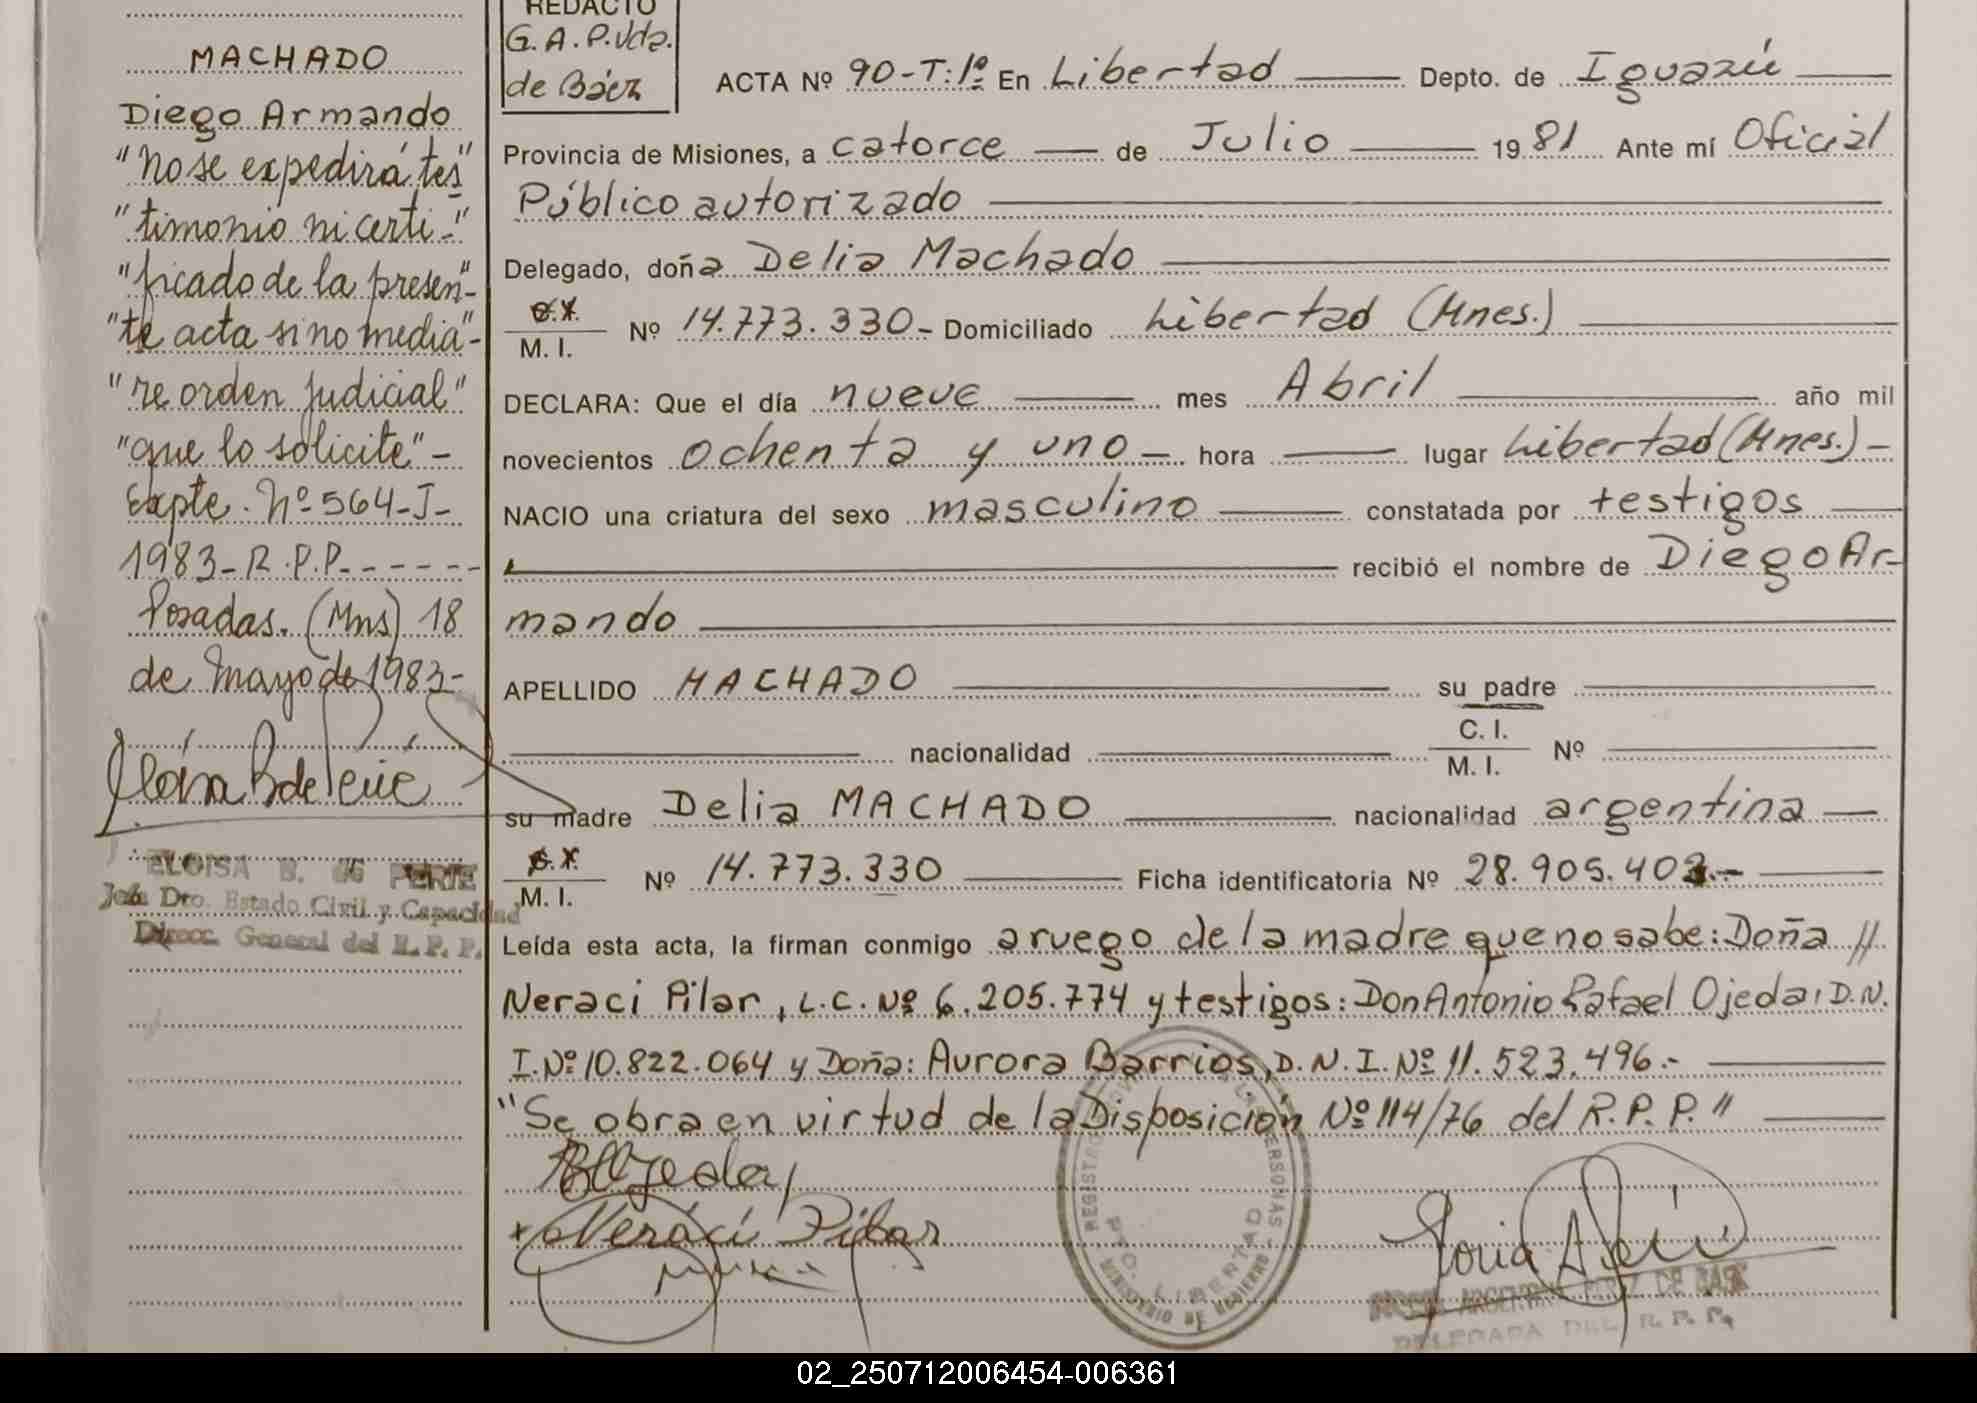 MACHADO
Diego Armando
"No se expedirá tes"
"timonio ni certi-"
"ficado de la presen"-
"te acta sino media"-
"re orden judicial"
"que lo solicite"-
Expte. Nº 564-J-
1983-R.P.P.------
Posadas. (Mns) 18
de Mayo de 1983-
ELOISA B. de PERIE
Jefa Dto. Estado Civil y Capacidad
Direcc. General del R. P. P.
REDACTO
G.A.P.Vda.
de Báez
ACTA Nº 90-T:1º En Libertad Depto. de Iguazú
Provincia de Misiones, a catorce de Julio 1981 Ante mí Oficial
Público autorizado
Delegado, doña Delia Machado
C.I.
M. I. Nº 14.773.330- Domiciliado Libertad (Mnes.)
DECLARA: Que el día nueve mes Abril año mil
novecientos ochenta y uno - hora lugar Libertad (Mnes.) -
NACIO una criatura del sexo masculino constatada por testigos
recibió el nombre de Diego Ar-
mando
APELLIDO MACHADO su padre
nacionalidad C. I.
M. I. Nº
su madre Delia MACHADO nacionalidad argentina
C.I.
M. I. Nº 14.773.330 Ficha identificatoria Nº
Leída esta acta, la firman conmigo a ruego de la madre que no sabe: Doña //
Neraci Pilar, L.C. Nº 6.205.774 y testigos: Don Antonio Rafael Ojeda, D.N.
I. Nº 10.822.064 y Doña: Aurora Barrios, D.N.I. Nº 11.523.496.-
"Se obra en virtud de la Disposición Nº 114/76 del R.P.P."
Ojeda
Neraci Pilar
REGISTRO PERSONAS
DTO. LIBERTAD
MINISTERIO DE GOBIERNO
ARGENTINA PEREZ DE BAEZ
DELEGADA DEL R. P. P.
02_250712006454-006361